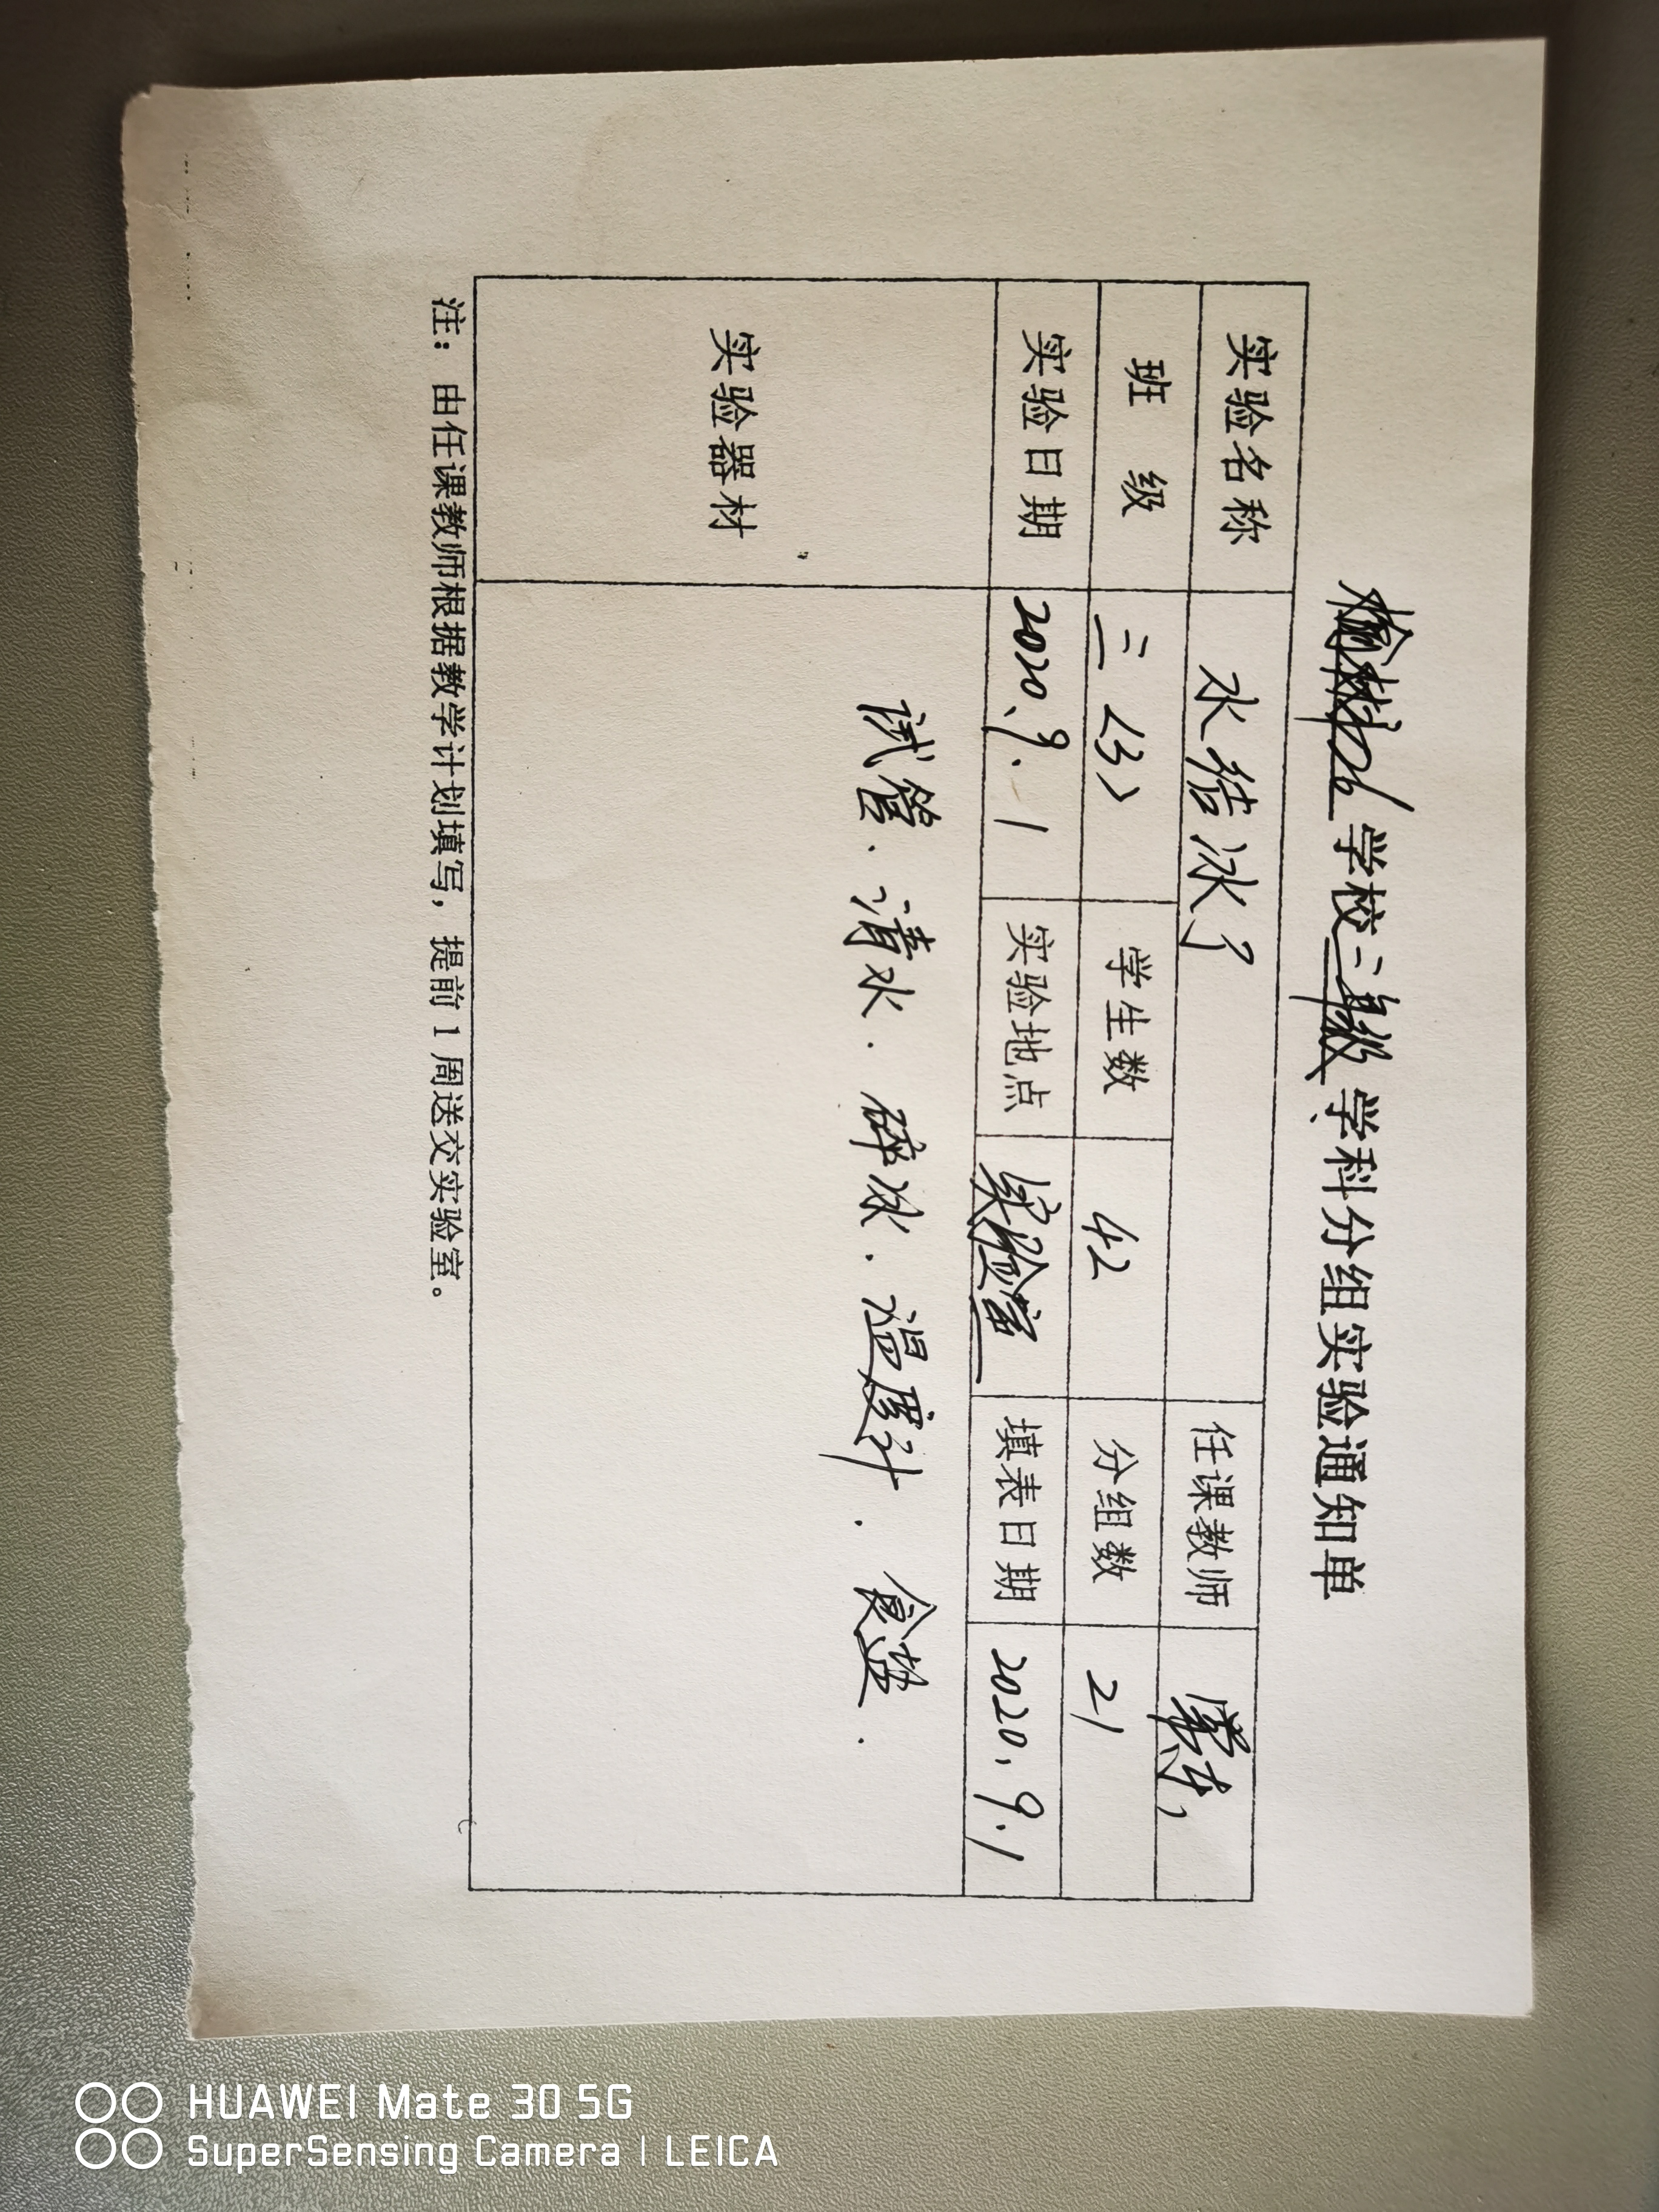 榆树 学校 三年级 学科分组实验通知单
实验名称 水结冰了 任课教师
班 级 三(3) 学生数 42 分组数 21
实验日期 2020.9.1 实验地点 实验室 填表日期 2020.9.1
实验器材 试管.清水.碎冰.温度计.食盐.
注：由任课教师根据教学计划填写，提前1周送交实验室。
HUAWEI Mate 30 5G
SuperSensing Camera | LEICA